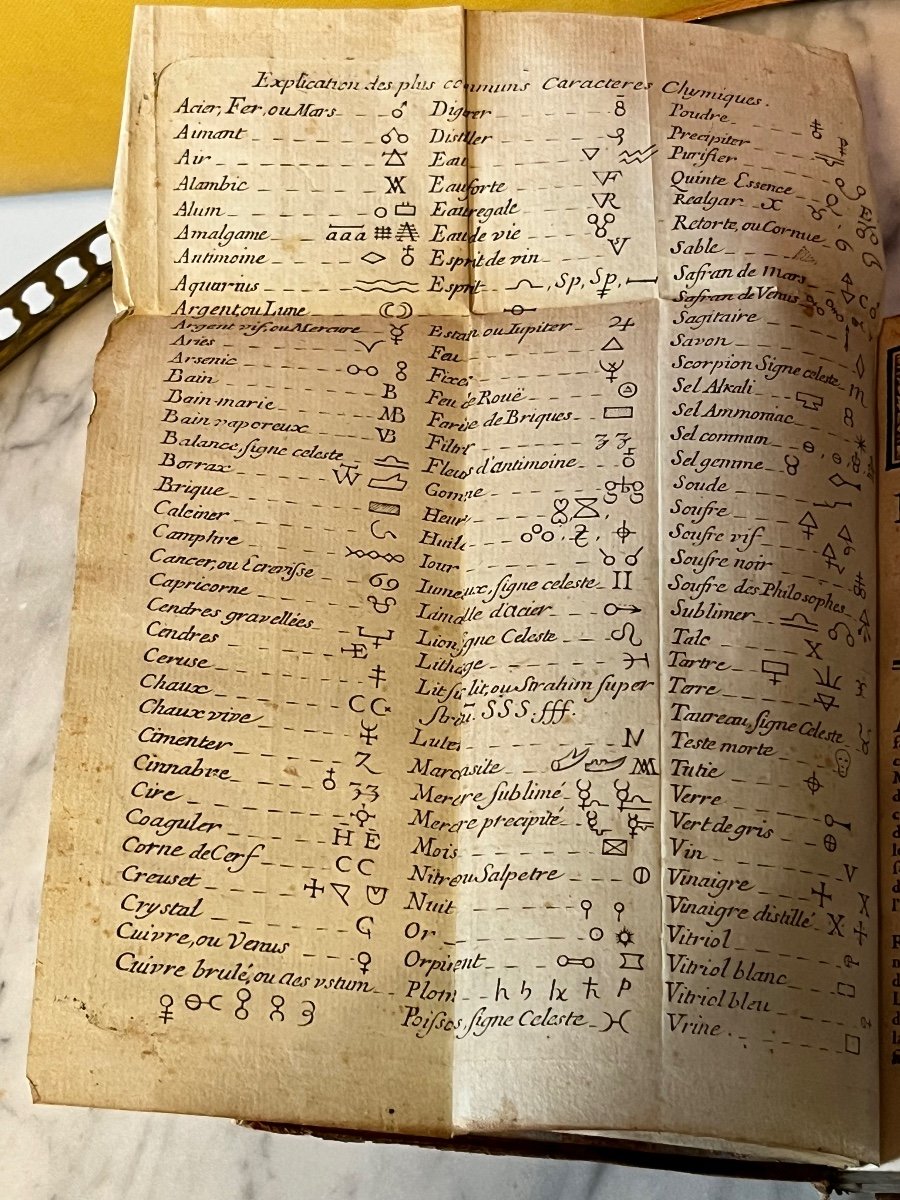 Explication des plus communs Caracteres Chymiques.
Acier, Fer, ou Mars
Aimant
Air
Alambic
Alum
Amalgame aaa
Antimoine
Aquarius
Argent ou Lune
Argent vif, ou Mercure
Aries
Arsenic
Bain B
Bain-marie MB
Bain vaporeux VB
Balance, signe celeste
Borrax
Brique
Calciner
Camphre
Cancer, ou Ecrevisse
Capricorne
Cendres gravellées
Cendres E
Ceruse
Chaux C C
Chaux vive
Cimenter Z
Cinnabre 33
Cire
Coaguler H E
Corne de Cerf C C
Creuset
Crystal
Cuivre, ou Venus
Cuivre brulé, ou aes vstum
Digerer
Distiller
Eau
Eau forte
Eau regale
Eau de vie
Esprit de vin
Esprit , Sp, Sp,
Estain ou Iupiter
Feu
Fixe
Feu de Rouë
Farine de Briques
Filtrer
Fleurs d'antimoine
Gomme
Heure
Huile
Iour
Iumeaux, signe celeste II
Limaille d'acier
Lion, signe Celeste
Litharge
Lit sur lit, ou Strahim super
Strāt. SSS. fff.
Luter
Marcasite
Mercure sublimé
Mercure precipité
Mois
Nitre ou Salpetre
Nuit
Or
Orpiment
Plomb
Poissons, signe Celeste
Poudre
Precipiter
Purifier
Quinte Essence
Realgar
Retorte, ou Cornue
Sable
Safran de Mars
Safran de Venus
Sagitaire
Savon
Scorpion Signe celeste
Sel Alkali
Sel Ammoniac
Sel commun
Sel gemme
Soude
Soufre
Soufre vif
Soufre noir
Soufre des Philosophes
Sublimer
Talc X
Tartre
Terre
Taureau, signe Celeste
Teste morte
Tutie
Verre
Vert de gris
Vin V
Vinaigre X
Vinaigre distillé X
Vitriol
Vitriol blanc
Vitriol bleu
Vrine.